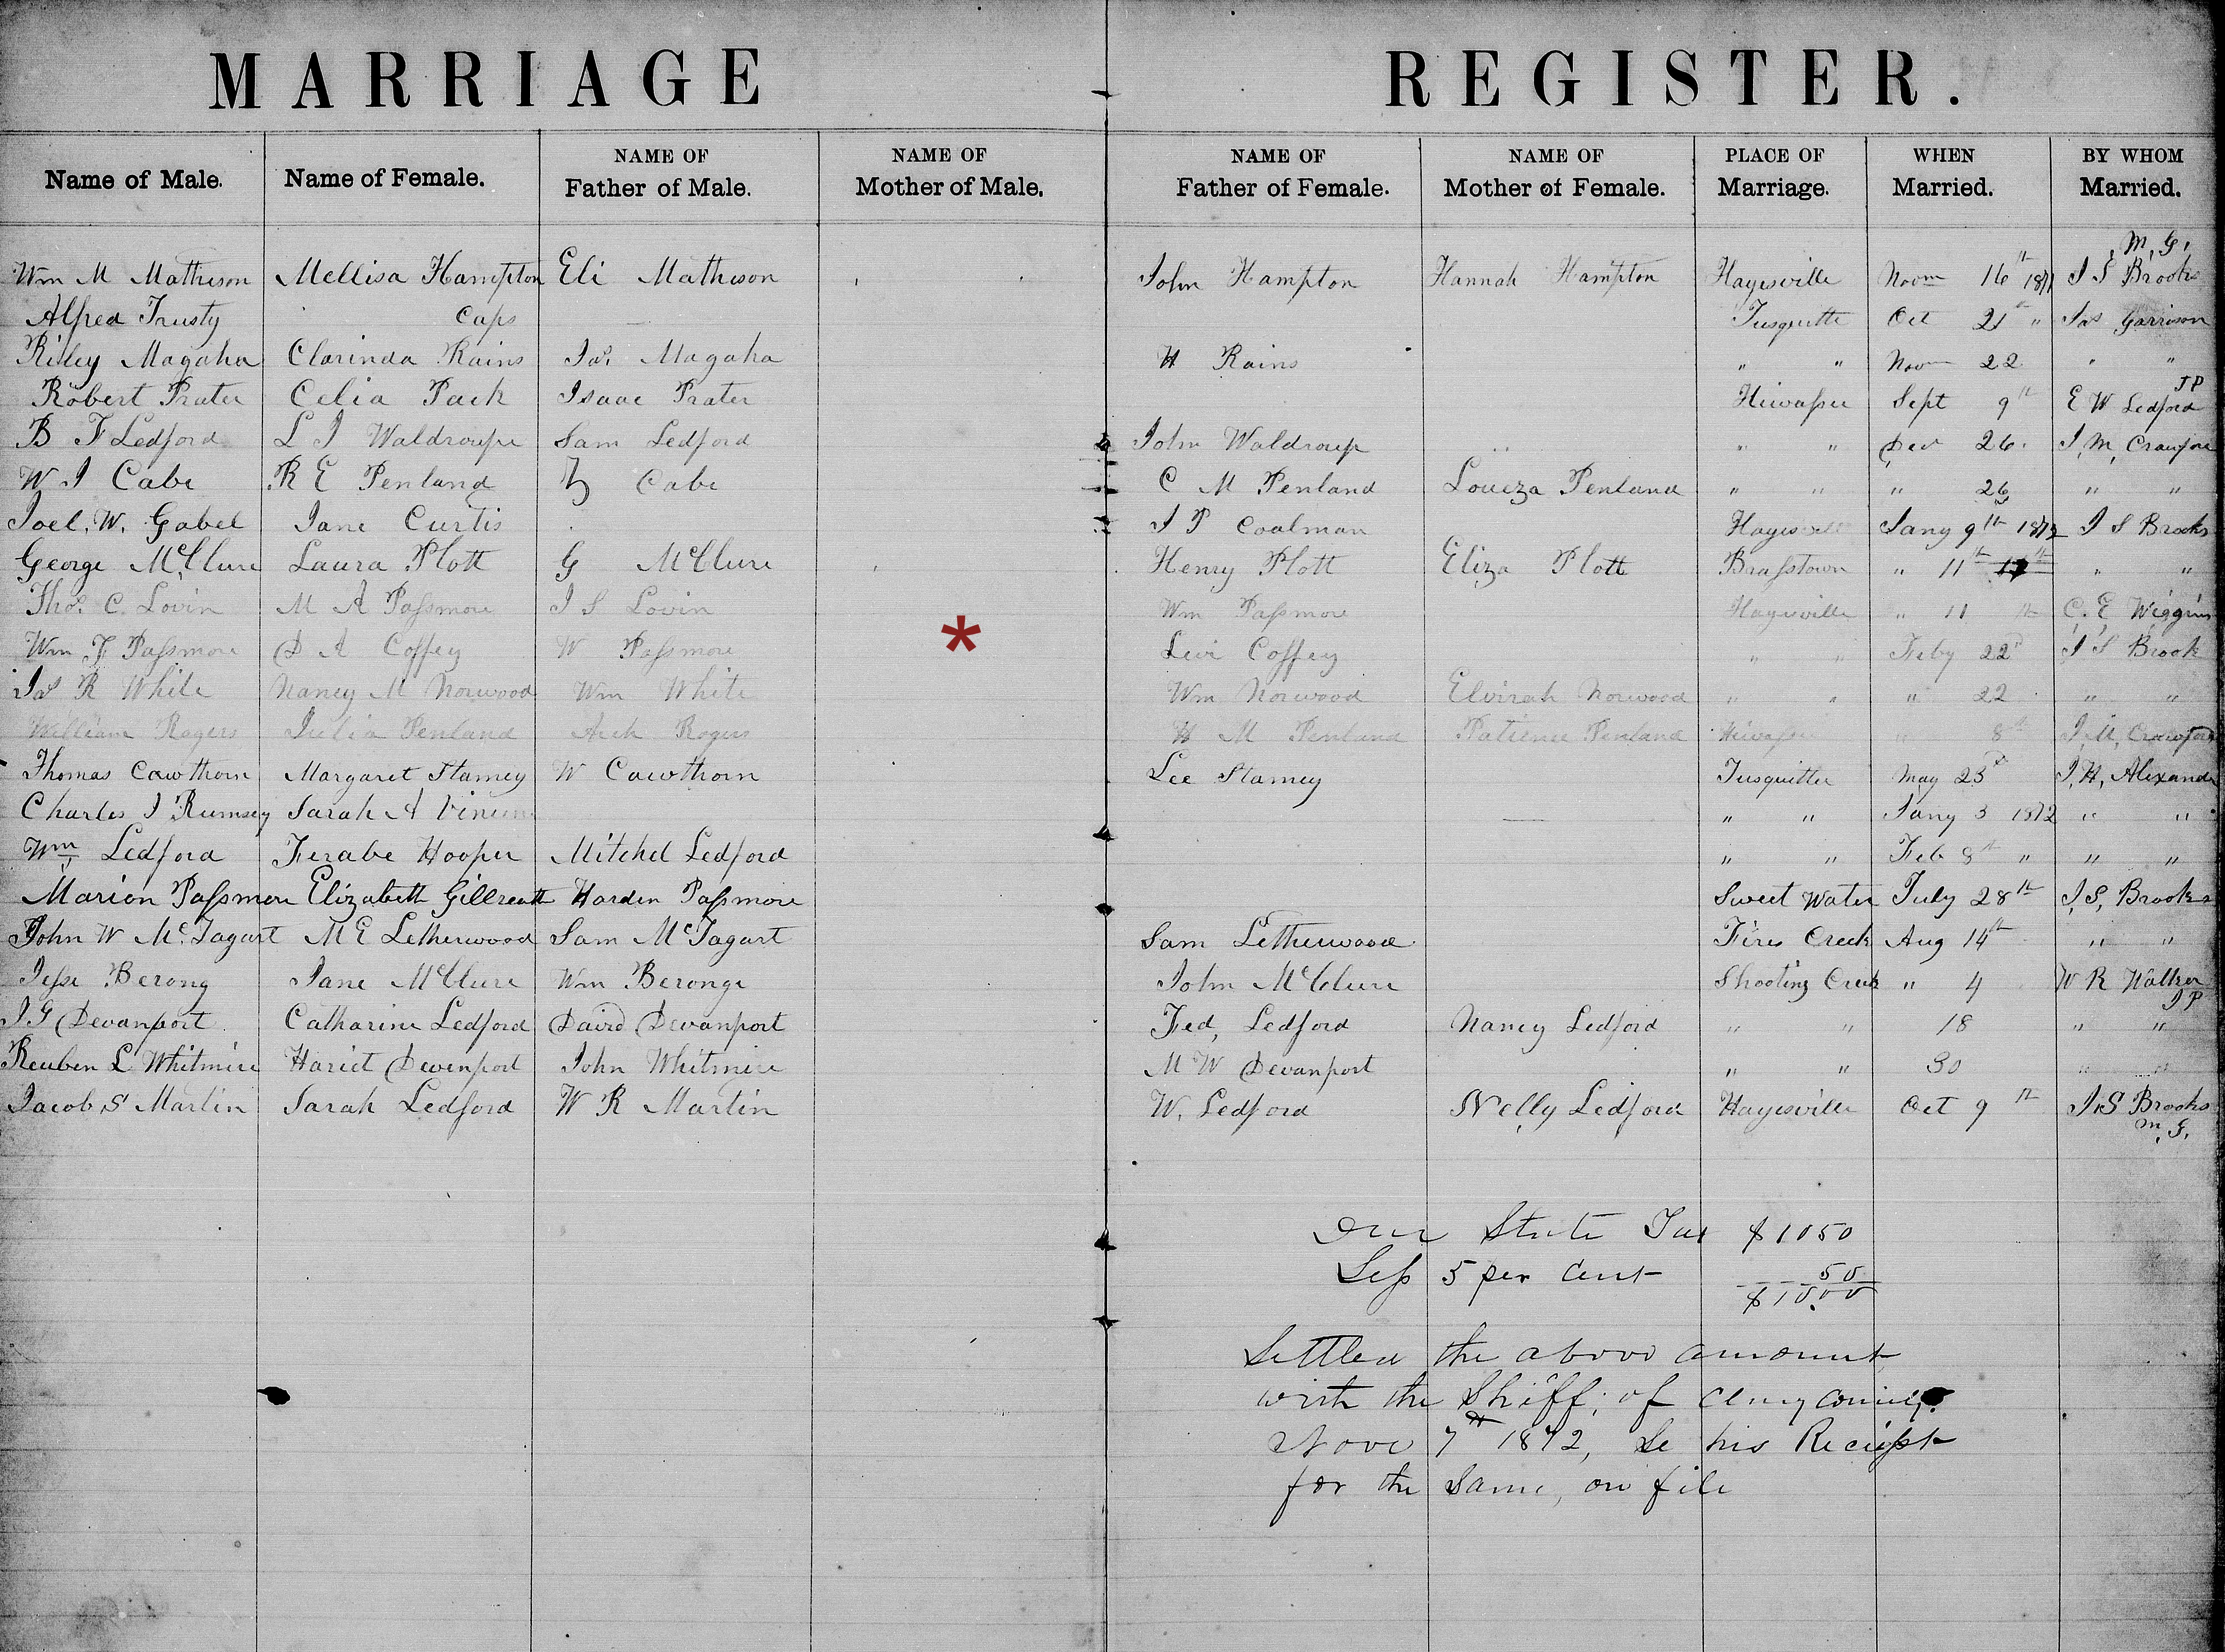 MARRIAGE REGISTER.
Name of Male. Name of Female. NAME OF Father of Male. NAME OF Mother of Male. NAME OF Father of Female. NAME OF Mother of Female. PLACE OF Marriage. WHEN Married. BY WHOM Married.
M. G.
Wm M Matheson Mellisa Hampton Eli Matheson John Hampton Hannah Hampton Hayesville Novm 16th 1871 J S Brooks
Alfred Trusty Caps Tusquitte Oct 21st " Jas Garrison
Riley Magaha Clarinda Rains Jas. Magaha H Rains " " Novm 22 " "
Robert Prater Celia Pack Isaac Prater Hiwassee Sept 9th E W Ledford JP
B F Ledford L J Waldroupe Sam Ledford John Waldroup " " Dec 26. J. M. Crawford
W J Cabe R E Penland Z Cabe C M Penland Loueza Penland " " " 26 " "
Joel. W. Gabel Jane Curtis J P Coalman Hayesville Jany 9th 1872 J S Brooks
George McClure Laura Plott G McClure Henry Plott Eliza Plott Brasstown " 11th 17th " "
Thos. C. Lovin M A Passmore J S Lovin Wm Passmore Hayesville " 11 th C. E Wiggins
*
Wm F Passmore D A Coffey W Passmore Levi Coffey " " Feby 22d J S Brook
Jas R White Nancy M Norwood Wm White Wm Norwood Elvirah Norwood " " " 22 " "
William Rogers Julia Penland Arch Rogers H M Penland Patience Penland Hiwassee " 8th J. M. Crawford
Thomas Cawthorn Margaret Stamey W Cawthorn Lee Stamey Tusquittee May 23d J. H. Alexander
Charles J Rumsey Sarah A " " Jany 3 1872 " "
Wm Ledford Ferabe Hooper Mitchel Ledford " " Feb 8th " " "
Marion Passmore Elizabeth Gillreath Harden Passmore Sweet Water July 28th J. S. Brooks
John W McTagart M E Letherwood Sam McTagart Sam Letherwood Fires Creek Aug 14th " "
Jesse Berong Jane McClure Wm Beronge John McClure Shooting Creek " 4 W R Walker JP
J G Devanport Catharine Ledford David Devanport Fed, Ledford Nancy Ledford " " 18 " "
Reuben L Whitmire Hariet Devenport John Whitmire M W Devanport " " 30 " "
Jacob S Martin Sarah Ledford W R Martin W. Ledford Nelly Ledford Hayesville Oct 9th J. S Brooks
M. G.
Due State Tax $1050
Less 5 per Cent 50
$10.00
Settled the above amount
with the Shiff; of Clay County
Nove 7th 1872, Se his Reciept
for the Same, on file